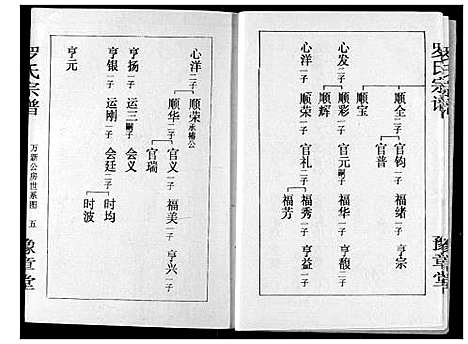 罗氏宗谱
豫章堂
顺全二子 官钧一子 福绪一子 亨宗
官普
顺宝
心发二子 顺彩一子 官元嗣子 福华一子 亨馥二子
顺辉
心洋二子 顺荣一子 官礼二子 福秀一子 亨益一子
福芳
心洋二子 顺荣承椿公
顺华二子 官义一子 福美一子 亨兴一子
官瑞
亨扬一子 运三嗣子 会义
亨银一子 运刚一子 会廷二子 时均
时波
亨元
罗氏宗谱
万新公房世系图 五
豫章堂